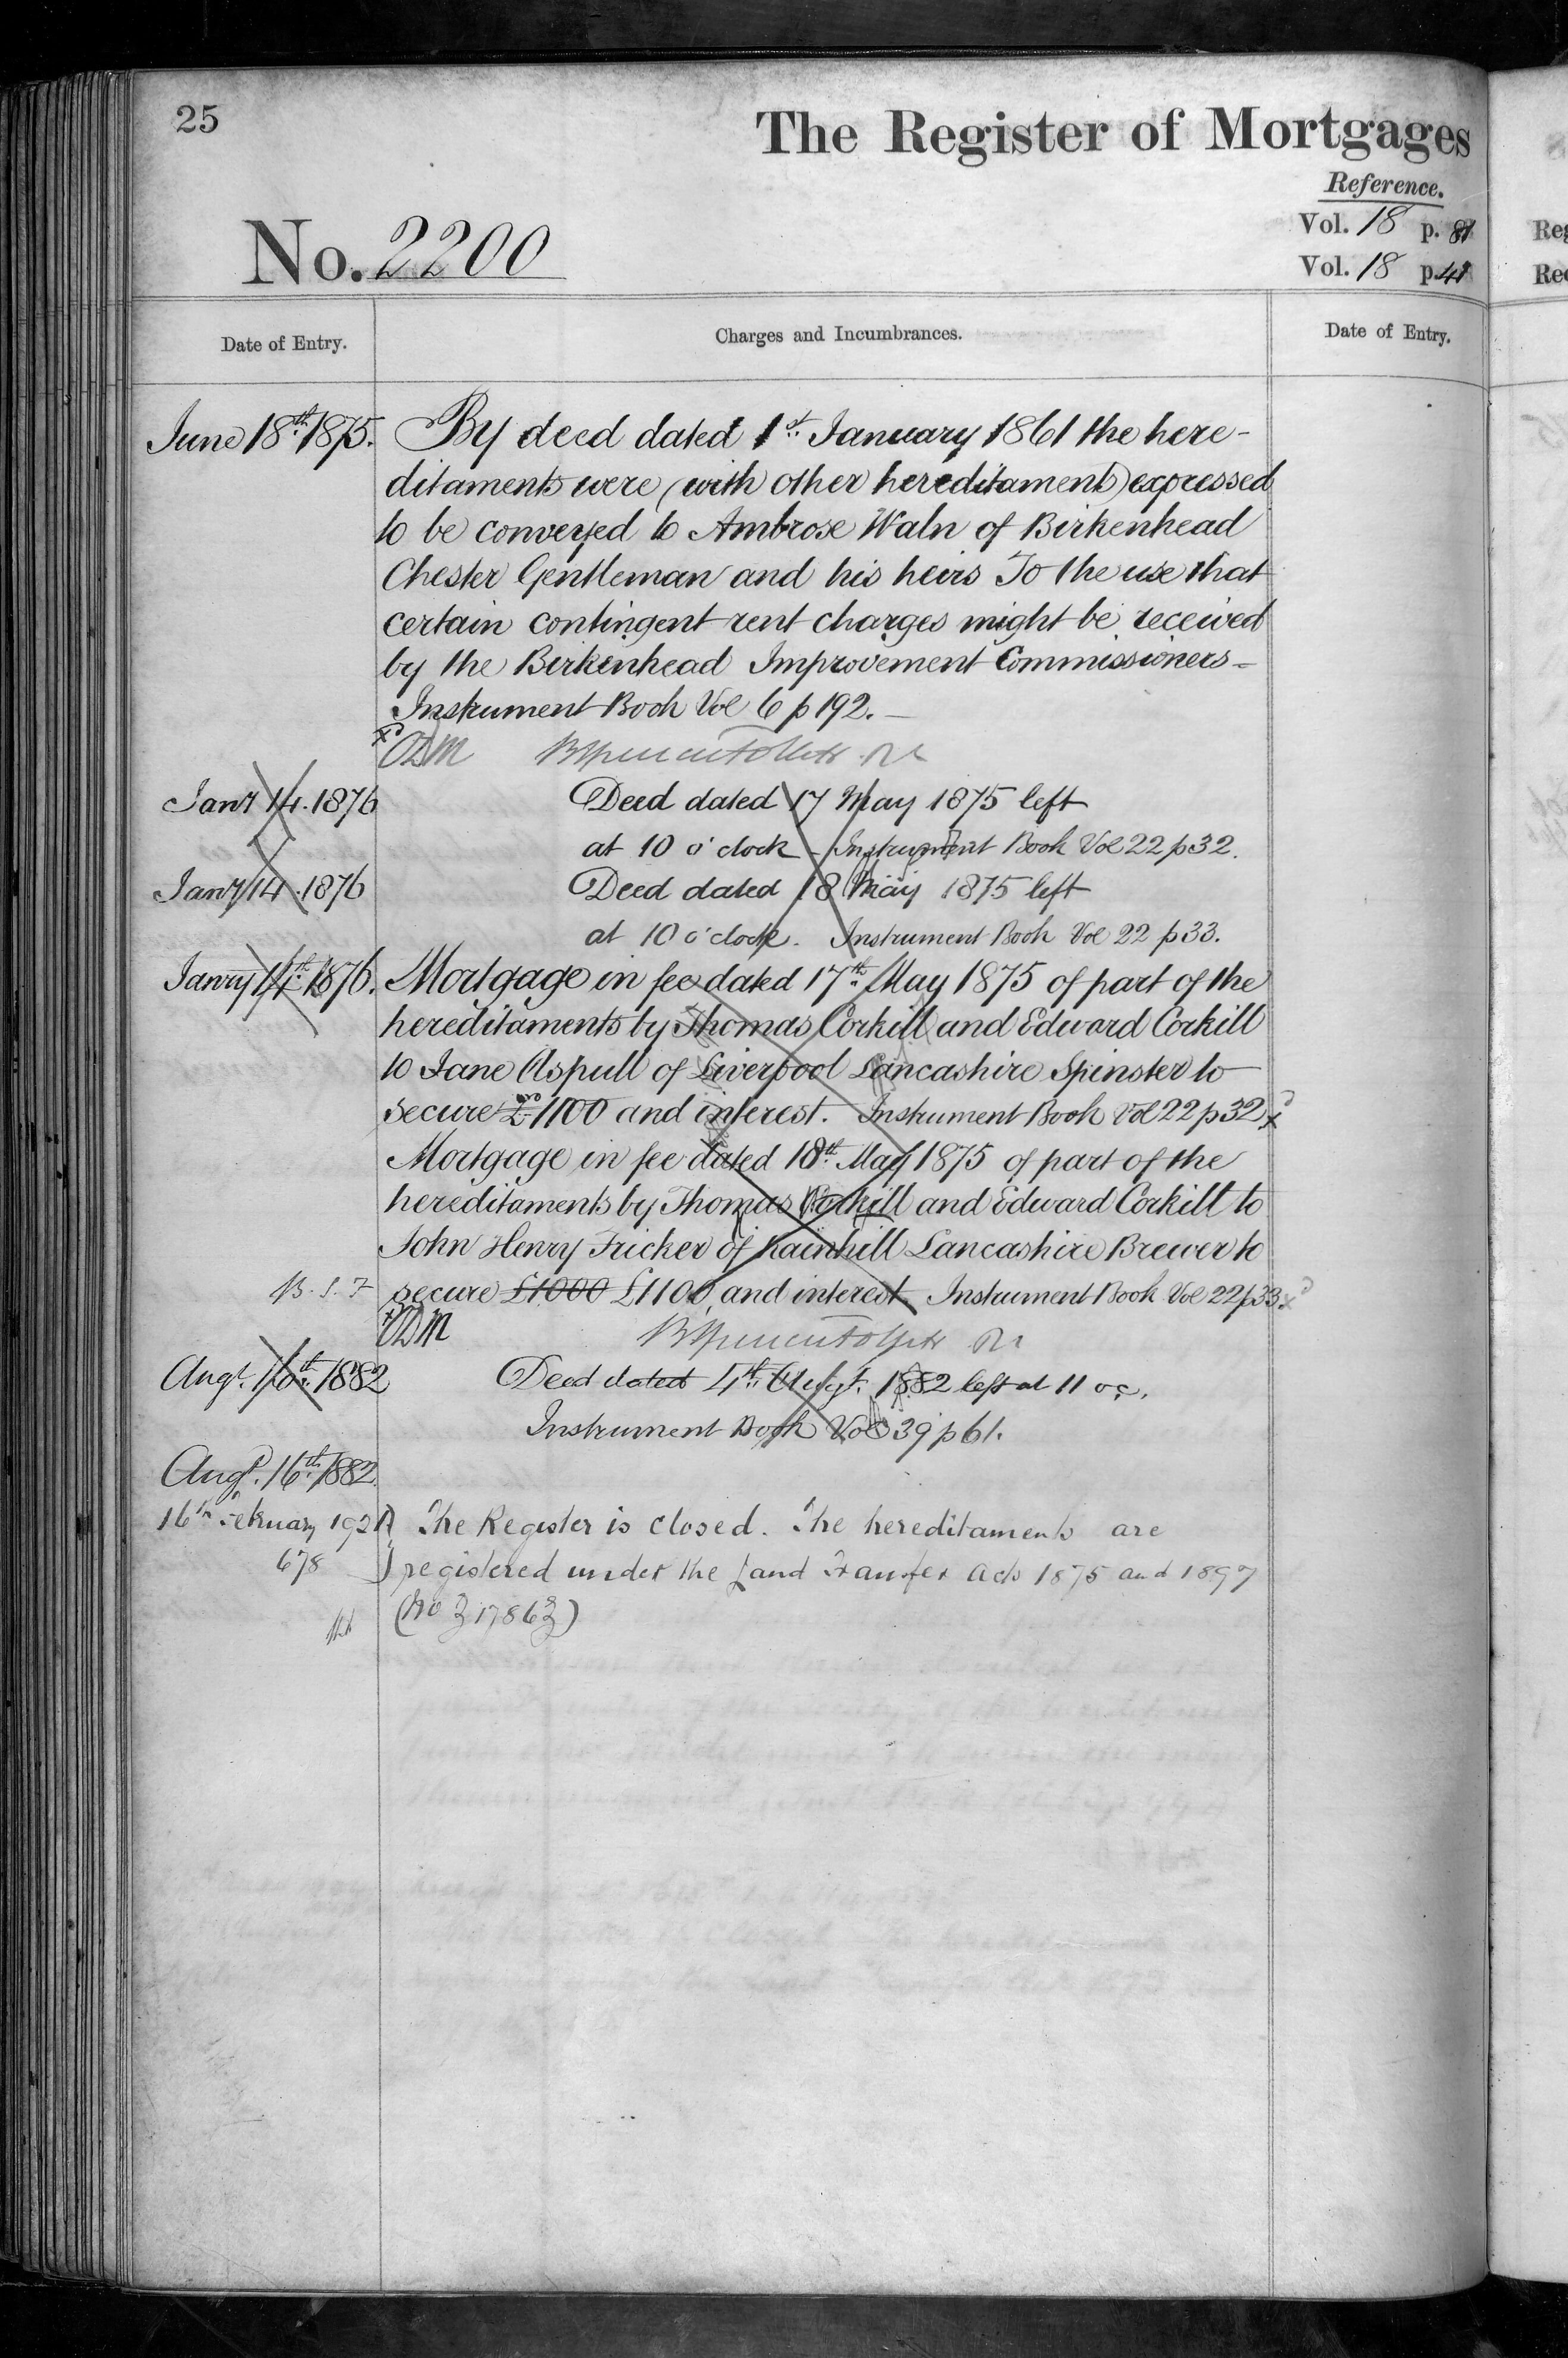 25
The Register of Mortgages
Reference.
Vol. 18 p. 81
No. 2200
Vol. 18 p. 41
Date of Entry.
Charges and Incumbrances.
Date of Entry.
June 18th 1875. By deed dated 1st January 1861 the here-
ditaments were (with other hereditaments) expressed
to be conveyed to Ambrose Waln of Birkenhead
Chester Gentleman and his heirs To the use that
certain contingent rent charges might be received
by the Birkenhead Improvement Commissioners -
Instrument Book Vol 6 p 192. -
Jany 14. 1876 Deed dated 17 May 1875 left
at 10 o'clock - Instrument Book Vol 22 p 32.
Jany 14. 1876 Deed dated 18 May 1875 left
at 10 o'clock. Instrument Book Vol 22 p 33.
Janry 14th 1876. Mortgage in fee dated 17th May 1875 of part of the
hereditaments by Thomas Corkill and Edward Corkill
to Jane Aspull of Liverpool Lancashire Spinster to
secure £1100 and interest. Instrument Book Vol 22 p 32
Mortgage in fee dated 18th May 1875 of part of the
hereditaments by Thomas Corkill and Edward Corkill to
John Henry Fricker of Rainhill Lancashire Brewer to
B.S.F secure £1000 £1100 and interest. Instrument Book Vol 22 p 33
ODM
Augt. 16th 1882 Deed dated 4th Augt. 1882 left at 11 oc.
Instrument Book Vol 39 p 61.
Augt. 16th 1882.
16th February 1921 The Register is closed. The hereditaments are
678 registered under the Land Transfer Acts 1875 and 1897
(No Z 1786)